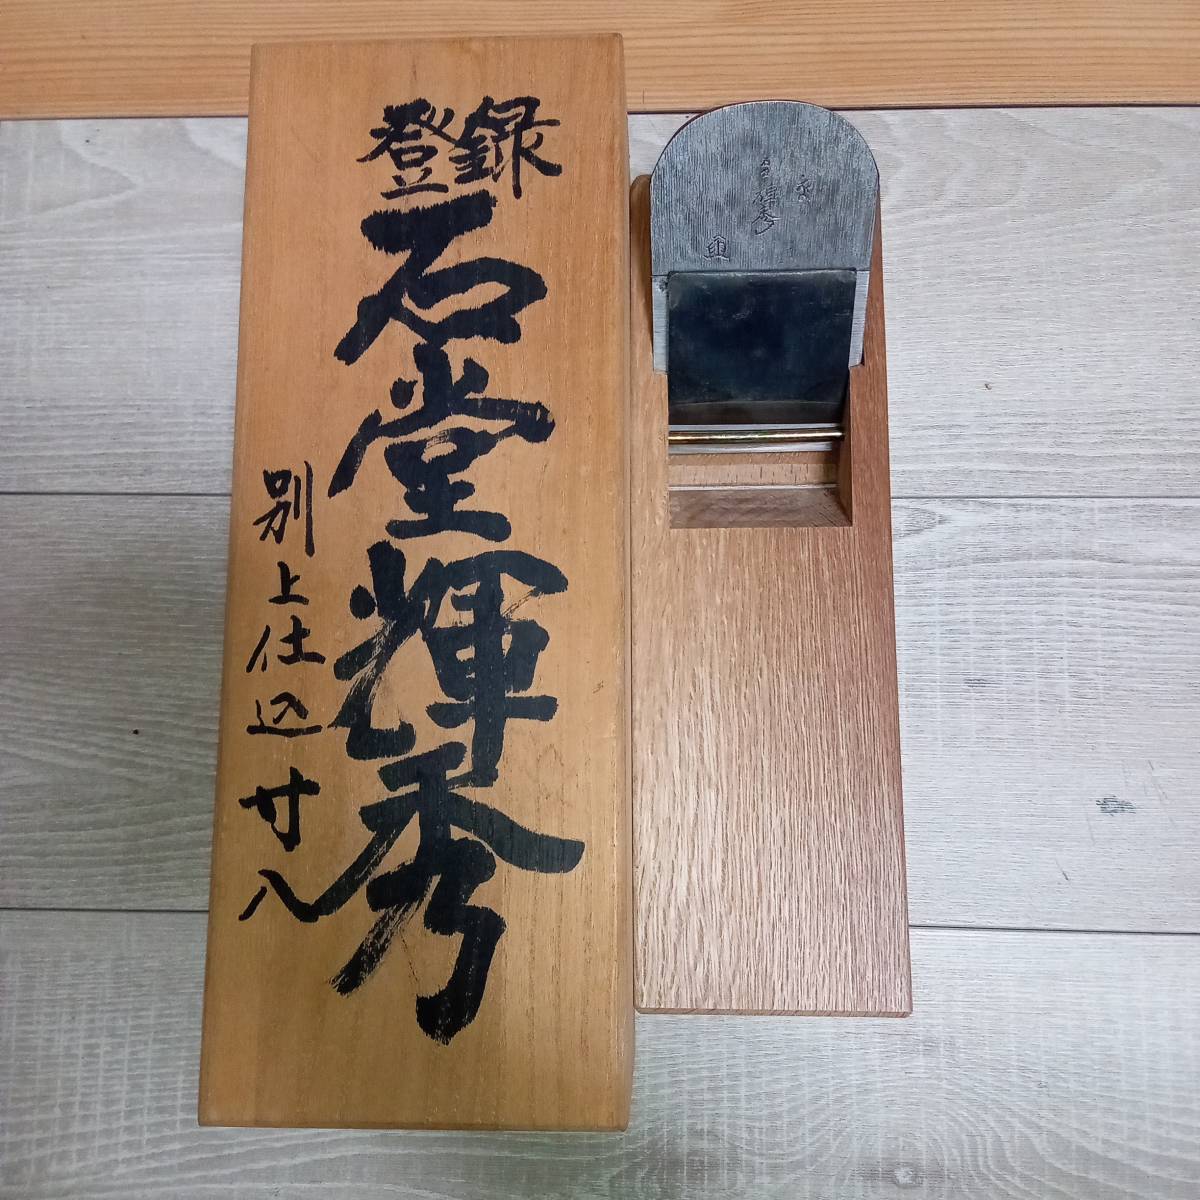 登録
石堂輝秀
別上仕込 寸八
輝秀